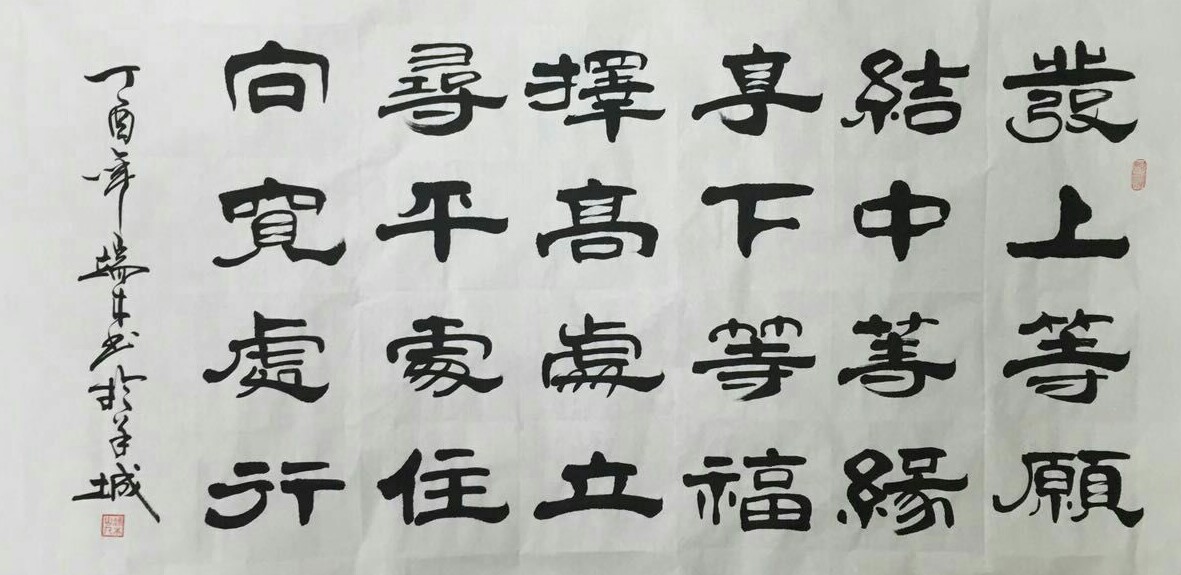 發上等願
結中等緣
享下等福
擇高處立
尋平處住
向寬處行
丁酉年瑞木书於羊城